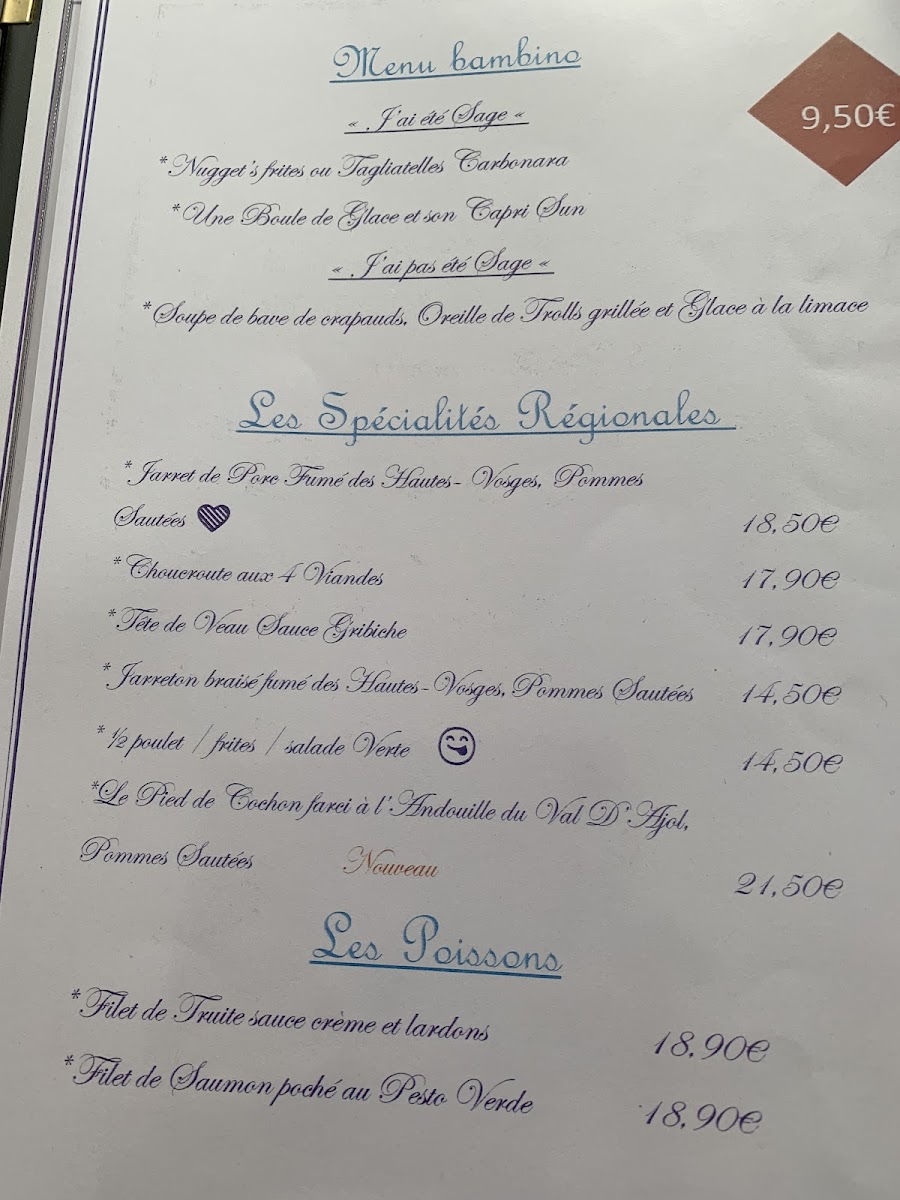 Menu bambino
9,50€
« J'ai été Sage «
*Nugget's frites ou Tagliatelles Carbonara
*Une Boule de Glace et son Capri Sun
« J'ai pas été Sage «
*Soupe de bave de crapauds, Oreille de Trolls grillée et Glace à la limace
Les Spécialités Régionales
*Jarret de Porc Fumé des Hautes- Vosges, Pommes
Sautées 18,50€
*Choucroute aux 4 Viandes 17,90€
*Tête de Veau Sauce Gribiche 17,90€
*Jarreton braisé fumé des Hautes-Vosges, Pommes Sautées 14,50€
*½ poulet / frites / salade Verte 14,50€
*Le Pied de Cochon farci à l'Andouille du Val D'Ajol,
Pommes Sautées Nouveau 21,50€
Les Poissons
*Filet de Truite sauce crème et lardons 18,90€
*Filet de Saumon poché au Pesto Verde 18,90€